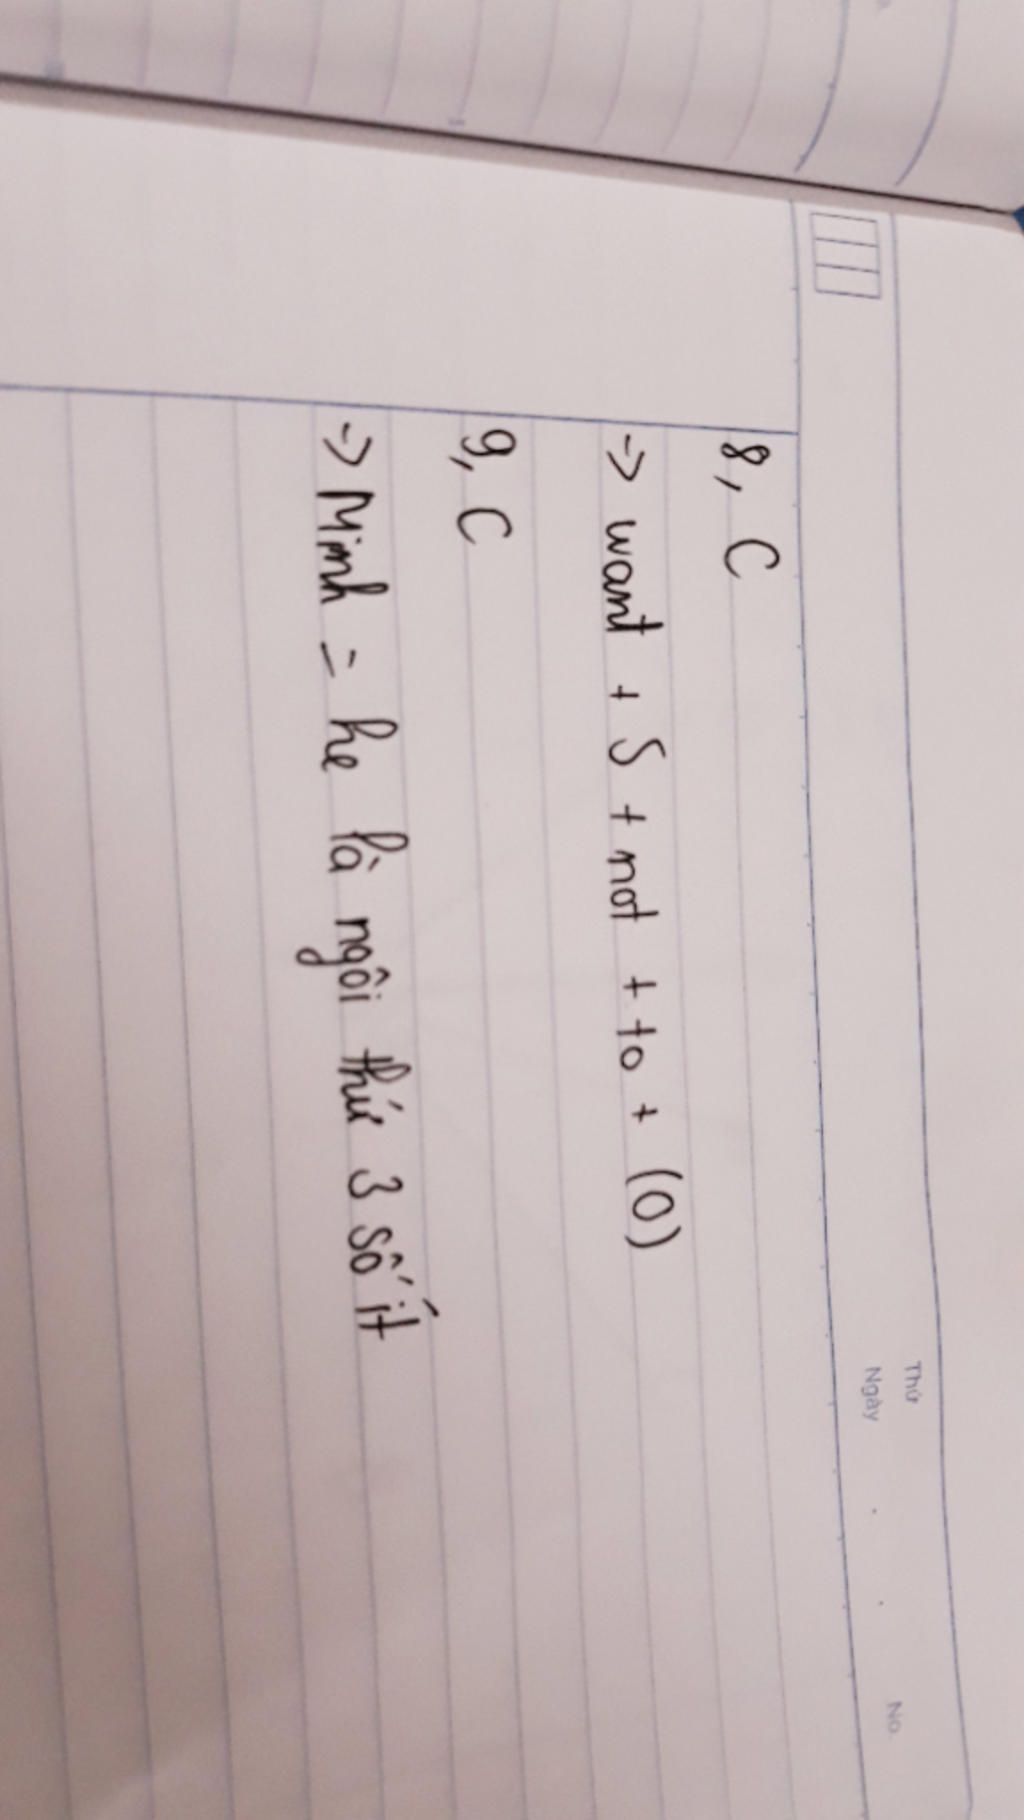 Thứ
Ngày
No.
8, C
-> want + S + not + to + (O)
9, C
-> Minh = he là ngôi thứ 3 số ít